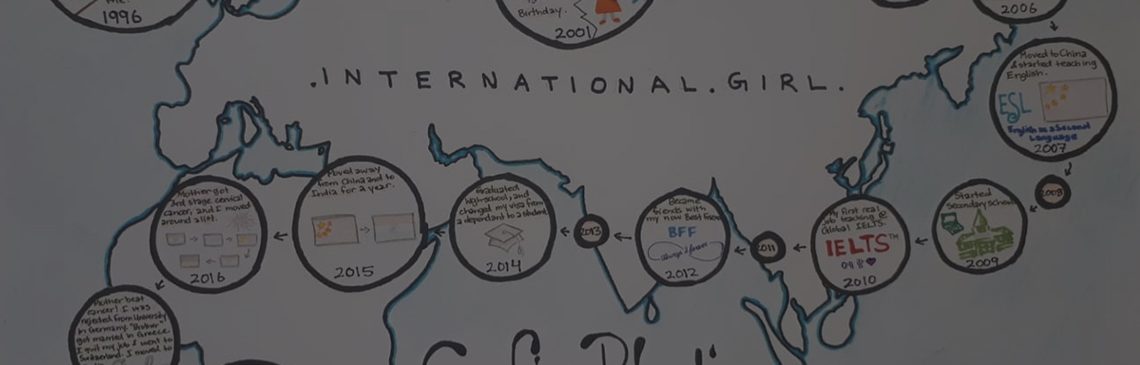 me.
1996
Birthday.
2001
2006
.INTERNATIONAL.GIRL.
Moved to China
& started teaching
English.
ESL
English as a Second
Language
2007
2008
Started
Secondary school
2009
My first real
job teaching @
Global IELTS.
IELTS™
2010
2011
Became
friends with
my now Best Friend
BFF
2012
2013
Graduated
High-school, and
changed my visa from
a dependant to a student.
2014
Moved away
from China and to
India for a year.
2015
Mother got
3rd stage cervical
cancer, and I moved
around a lot.
2016
Mother beat
cancer! I was
rejected from University
in Germany. "Brother"
got married in Greece.
I quit my job & went to
Switzerland. I moved to